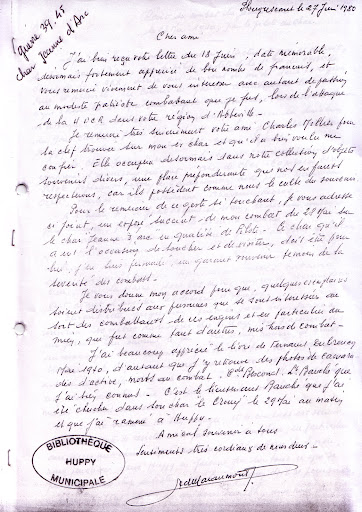 Guerre 39.45
char Jeanne d'Arc
le 27 Juin 1980
Cher ami
J'ai bien reçu votre lettre du 18 Juin, date mémorable,
désormais fortement appréciée de bon nombre de français, et
vous remercie vivement de vous intéresser avec autant de passion
au modeste patriote combattant que je fus, lors de l'attaque
de la 4 DCR dans votre région d'Abbeville
Je remercie très sincèrement votre ami Charles pour
la clef trouvée sur mon ex char et qu'il a bien voulu me
confier. Elle occupera désormais dans notre collection d'objets
souvenirs divers, une place prépondérante que nos enfants
respecterons, car ils possèdent comme nous le culte du souvenir
Pour le remercier de ce geste si touchant, je vous adresse
ci joint, un exposé succinct de mon combat du 28 Mai sur
le char Jeanne d'arc en qualité de Pilote. Le char qu'il
a eu l'occasion de toucher et de visiter, doit être pour
lui, j'en suis persuadé, un garant souvenir témoin de la
sévérité des combats.
Je vous donne mon accord pour que, quelques exemplaires
soient distribués aux personnes que se sont intéressées au
sort des combattants de ces engins et en particulier du
mien, que fut comme tant d'autres, mis hors de combat.
J'ai beaucoup apprécié le livre de
Mai 1940, d'autant que j'y retrouve les photos de camara-
des d'active, morts au combat. que
j'ai bien connus. C'est le lieutenant que j'ai
été chercher dans son char le Crécy le 29 Mai au matin
et que j'ai ramené à Huppy.
Amical souvenir à tous
Sentiments très cordiaux de nous deux.
BIBLIOTHEQUE
HUPPY
MUNICIPALE